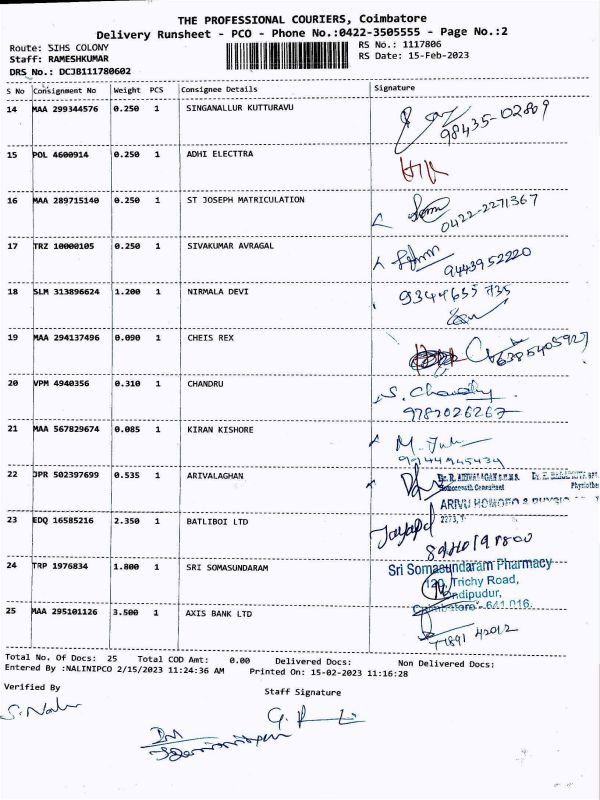 THE PROFESSIONAL COURIERS, Coimbatore
Delivery Runsheet - PCO - Phone No.:0422-3505555 - Page No.:2
Route: SIHS COLONY RS No.: 1117806
Staff: RAMESHKUMAR RS Date: 15-Feb-2023
DRS No.: DCJB111780602
S No Consignment No Weight PCS Consignee Details Signature
14 MAA 299344576 0.250 1 SINGANALLUR KUTTURAVU 98435-02809
15 POL 4600914 0.250 1 ADHI ELECTTRA
16 MAA 289715140 0.250 1 ST JOSEPH MATRICULATION 0422-2271367
17 TRZ 10000105 0.250 1 SIVAKUMAR AVRAGAL 9443952220
18 SLM 313896624 1.200 1 NIRMALA DEVI 9344635735
19 MAA 294137496 0.090 1 CHEIS REX 6385405927
20 VPM 4940356 0.310 1 CHANDRU
9787026267
21 MAA 567829674 0.085 1 KIRAN KISHORE
9944945434
22 JPR 502397699 0.535 1 ARIVALAGHAN
Homoeopath Consultant
ARIVU HOMOEO & PHYSIO
23 EDQ 16585216 2.350 1 BATLIBOI LTD
24 TRP 1976834 1.800 1 SRI SOMASUNDARAM Sri Somasundaram Pharmacy
Trichy Road,
Ondipudur,
Coimbatore - 641 016.
25 MAA 295101126 3.500 1 AXIS BANK LTD
42012
Total No. Of Docs: 25 Total COD Amt: 0.00 Delivered Docs: Non Delivered Docs:
Entered By :NALINIPCO 2/15/2023 11:24:36 AM Printed On: 15-02-2023 11:16:28
Verified By Staff Signature